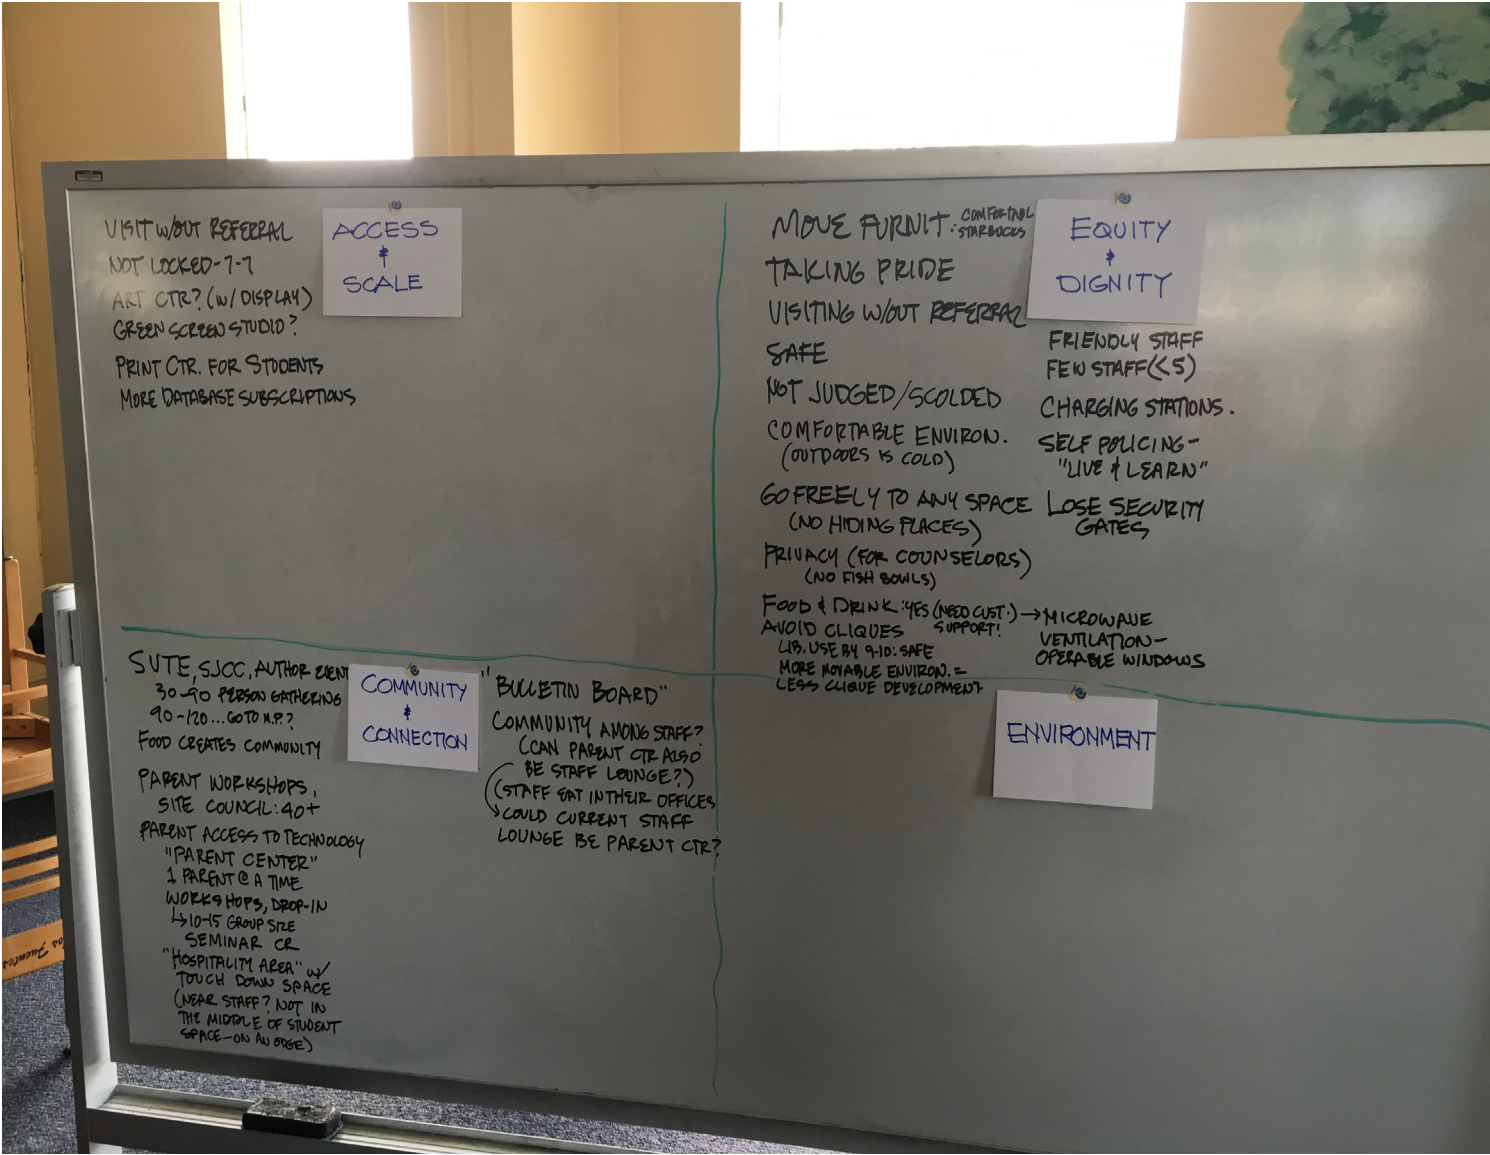 VISIT W/OUT REFERRAL
NOT LOCKED-7-7
ART CTR? (W/ DISPLAY)
GREEN SCREEN STUDIO?
PRINT CTR. FOR STUDENTS
MORE DATABASE SUBSCRIPTIONS
ACCESS
&
SCALE
MOVE FURNIT. : COMFORTABL
STARBUCKS
TAKING PRIDE
VISITING W/OUT REFERRAL
SAFE
NOT JUDGED/SCOLDED
COMFORTABLE ENVIRON.
(OUTDOORS IS COLD)
GO FREELY TO ANY SPACE
(NO HIDING PLACES)
PRIVACY (FOR COUNSELORS)
(NO FISH BOWLS)
FOOD & DRINK: YES (NEED CUST.) → MICROWAVE
SUPPORT!
AVOID CLIQUES
LIB. USE BY 9-10: SAFE
MORE MOVABLE ENVIRON. =
LESS CLIQUE DEVELOPMENT
EQUITY
&
DIGNITY
FRIENDLY STAFF
FEW STAFF (<5)
CHARGING STATIONS.
SELF POLICING-
"LIVE & LEARN"
LOSE SECURITY
GATES
VENTILATION-
OPERABLE WINDOWS
SVTE, SJCC, AUTHOR EVENT
30-90 PERSON GATHERING
90-120... GO TO M.P.?
FOOD CREATES COMMUNITY
PARENT WORKSHOPS,
SITE COUNCIL: 40+
PARENT ACCESS TO TECHNOLOGY
"PARENT CENTER"
1 PARENT @ A TIME
WORKSHOPS, DROP-IN
↳ 10-15 GROUP SIZE
SEMINAR CR
"HOSPITALITY AREA" W/
TOUCH DOWN SPACE
(NEAR STAFF? NOT IN
THE MIDDLE OF STUDENT
SPACE-ON AN EDGE)
COMMUNITY
&
CONNECTION
"BULLETIN BOARD"
COMMUNITY AMONG STAFF?
(CAN PARENT CTR ALSO
BE STAFF LOUNGE?)
(STAFF EAT IN THEIR OFFICES
COULD CURRENT STAFF
LOUNGE BE PARENT CTR?
ENVIRONMENT
Fuentes